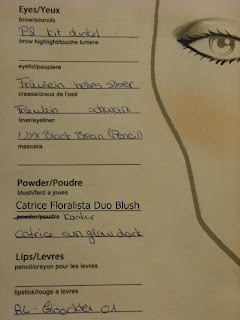 Eyes/Yeux
brow/sourcils
P2 Kit dunkel
brow highlight/touche lumiere
eyelid/paupiere
Fräulein helles silber
crease/creux de l'oeil
Fräulein schwarz
liner/eyeliner
NYX Black Bean (Pencil)
mascara
Powder/Poudre
blush/fard a joues
Catrice Floralista Duo Blush
powder/poudre Kontur
Catrice sun glow dark
Lips/Levres
pencil/crayon pour les levres
lipstick/rouge a levres
01